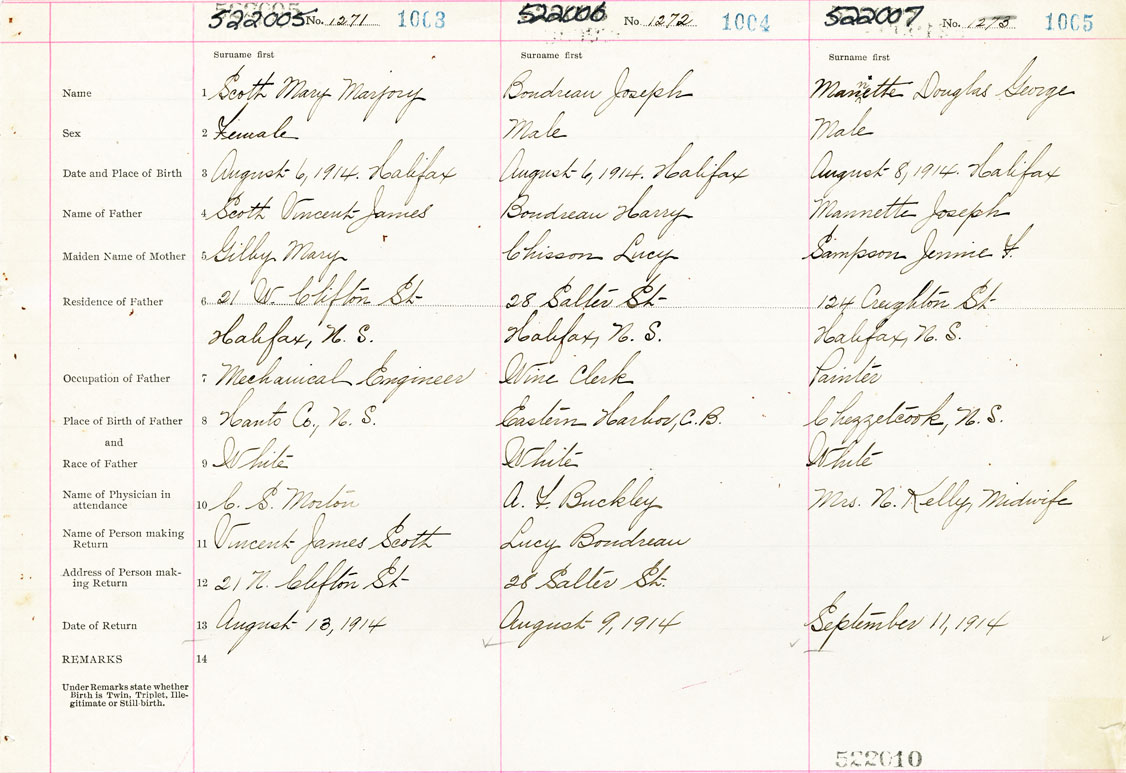 522005 No. 1271 1003 522006 No. 1272 1004 522007 No. 1273 1005
Surname first Surname first Surname first
Name 1 Scott Mary Marjory Boudreau Joseph Mannette Douglas George
Sex 2 Female Male Male
Date and Place of Birth 3 August 6, 1914. Halifax August 6, 1914. Halifax August 8, 1914. Halifax
Name of Father 4 Scott Vincent James Boudreau Harry Mannette Joseph
Maiden Name of Mother 5 Gilby Mary Chisson Lucy Sampson Jennie F.
Residence of Father 6 21 W. Clifton St 28 Salter St 124 Creighton St
Halifax, N. S. Halifax, N. S. Halifax, N. S.
Occupation of Father 7 Mechanical Engineer Wine Clerk Painter
Place of Birth of Father 8 Hants Co., N. S. Eastern Harbor, C. B. Chezzetcook, N. S.
and
Race of Father 9 White White White
Name of Physician in
attendance 10 C. S. Morton A. F. Buckley Mrs. N. Kelly, Midwife
Name of Person making
Return 11 Vincent James Scott Lucy Boudreau
Address of Person mak-
ing Return 12 21 N. Clifton St 28 Salter St.
Date of Return 13 August 13, 1914 August 9, 1914 September 11, 1914
REMARKS 14
Under Remarks state whether
Birth is Twin, Triplet, Ille-
gitimate or Still-birth.
522010